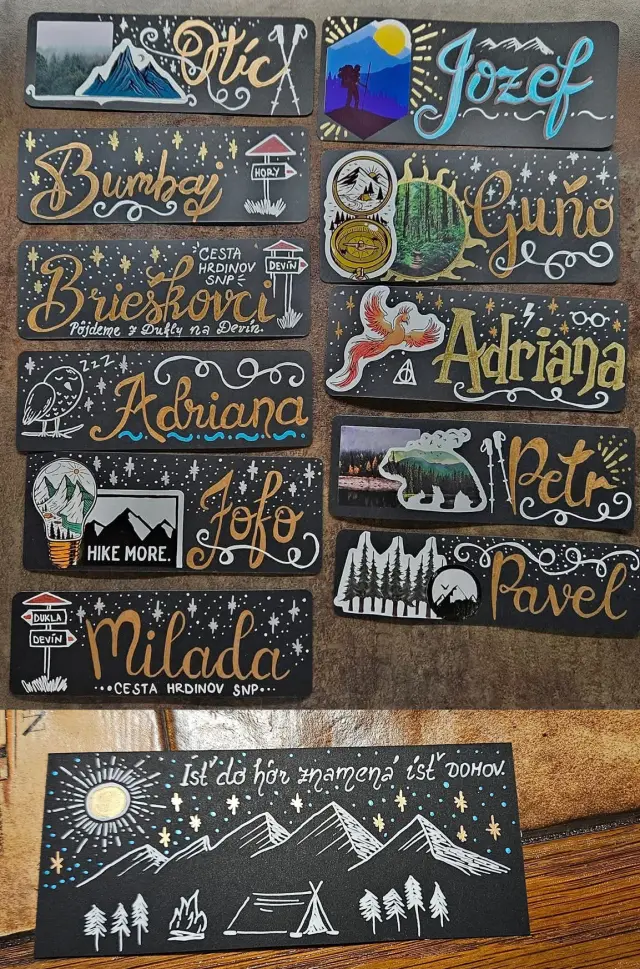 Otíc
Bumbaj
HORY
CESTA
HRDINOV
SNP
DEVÍN
Brieškovci
Pôjdeme z Dukly na Devín.
zzz
Adriana
HIKE MORE.
Jofo
DUKLA
DEVÍN
Milada
CESTA HRDINOV SNP
Jozef
Guňo
Adriana
Petr
Pavel
Isť do hôr znamená ísť DOMOV.